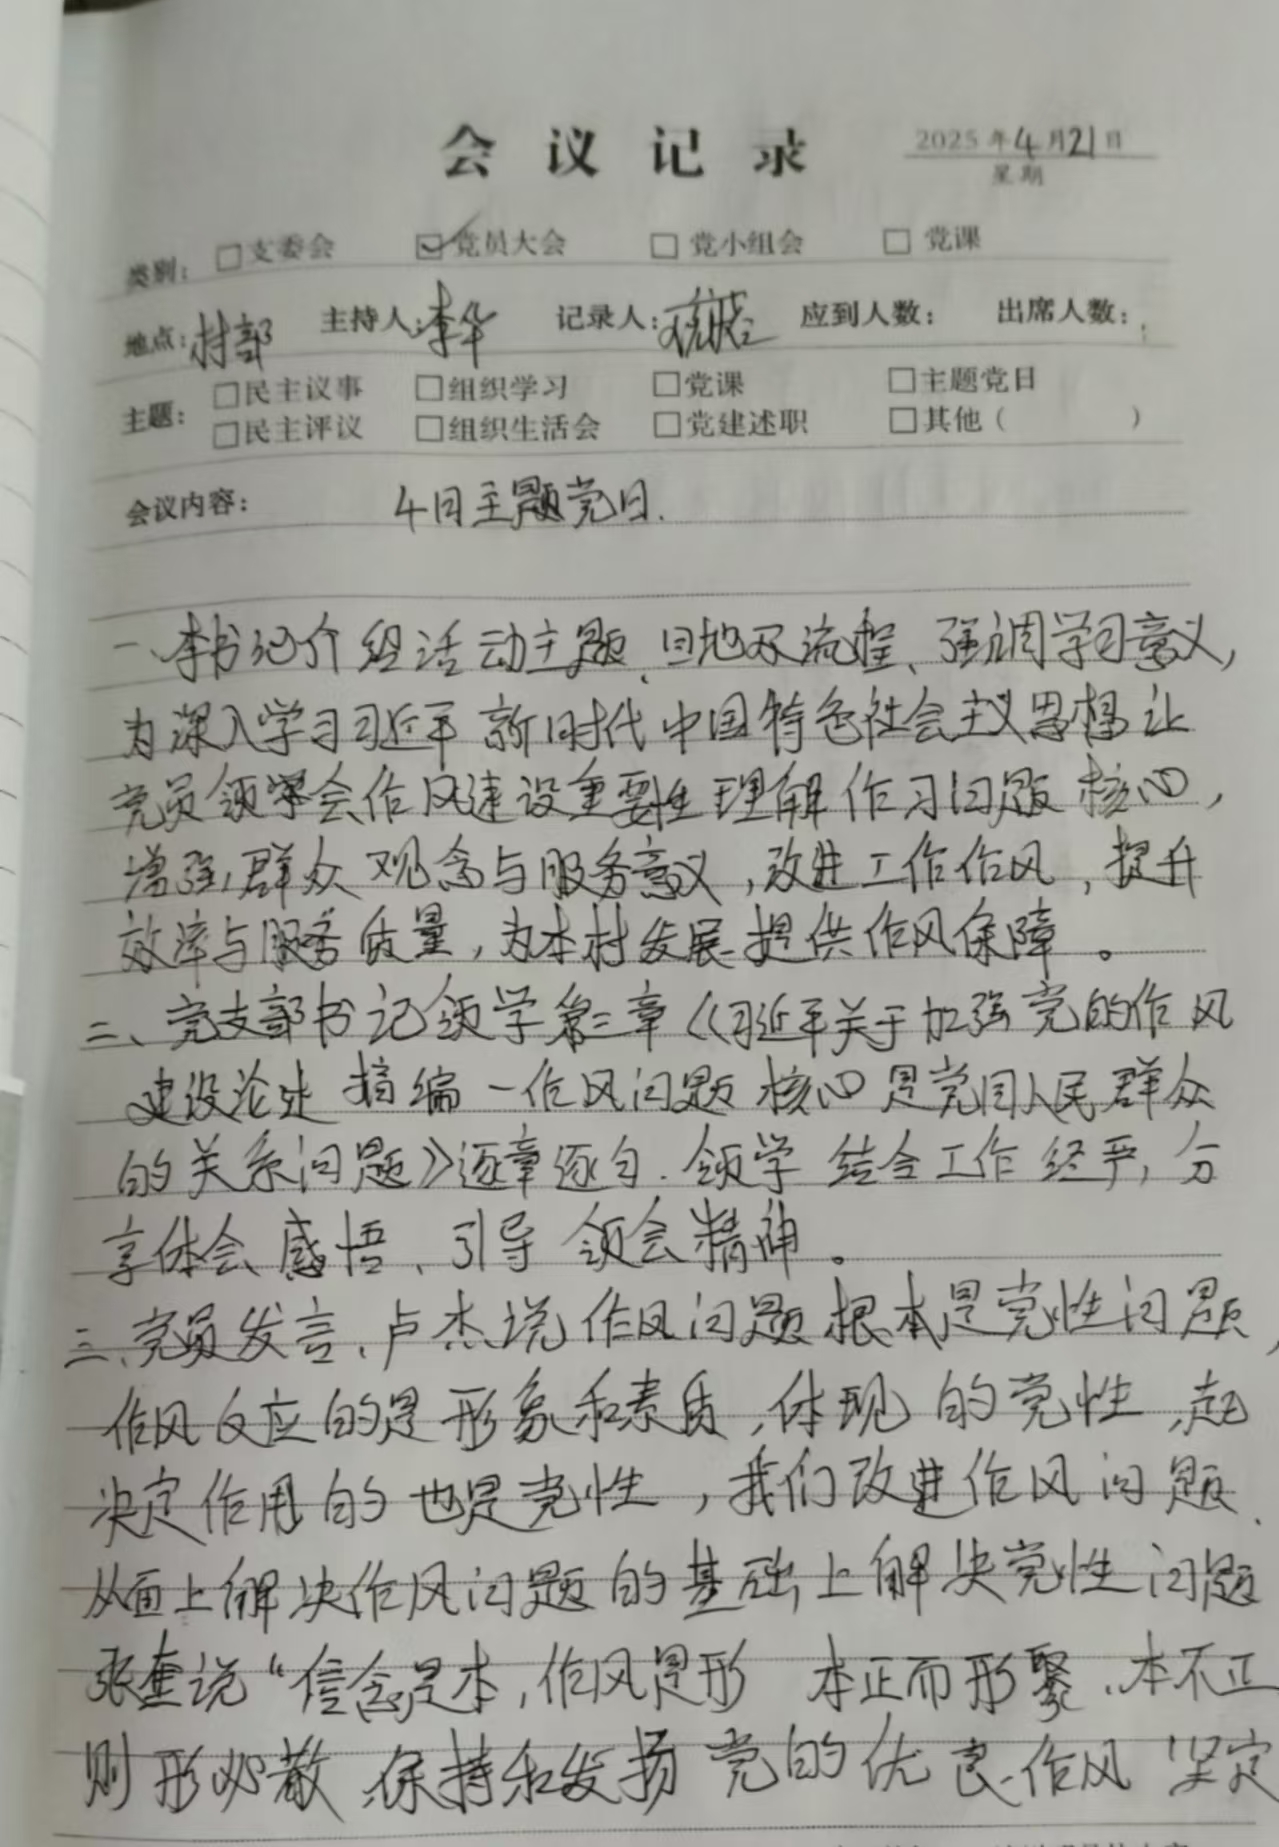 会议记录
2025年4月21日
星期
类别: □支委会 ☑党员大会 □党小组会 □党课
地点:村部 主持人:李华 记录人: 应到人数: 出席人数:
主题: □民主议事 □组织学习 □党课 □主题党日
□民主评议 □组织生活会 □党建述职 □其他( )
会议内容: 4日主题党日.
一、李书记介绍活动主题、目地及流程、强调学习意义,
为深入学习习近平新时代中国特色社会主义思想让
党员领会作风建设重要性理解作习问题核心,
增强群众观念与服务意义,改进工作作风,提升
效率与服务质量,为本村发展提供作风保障。
二、党支部书记领学第三章《习近平关于加强党的作风
建设论述摘编一作风问题核心是党同人民群众
的关系问题》逐章逐句.领学结合工作经严,分
享体会、感悟、引导领会精神。
三、党员发言、卢杰说作风问题根本是党性问题,
作风反应的是形象和素质,体现的党性,起
决定作用的也是党性,我们改进作风问题.
从面上解决作风问题的基础上解决党性问题
张奎说“信念是本,作风是形 本正而形聚、本不正
则形必散、保持和发扬党的优良作风 坚定